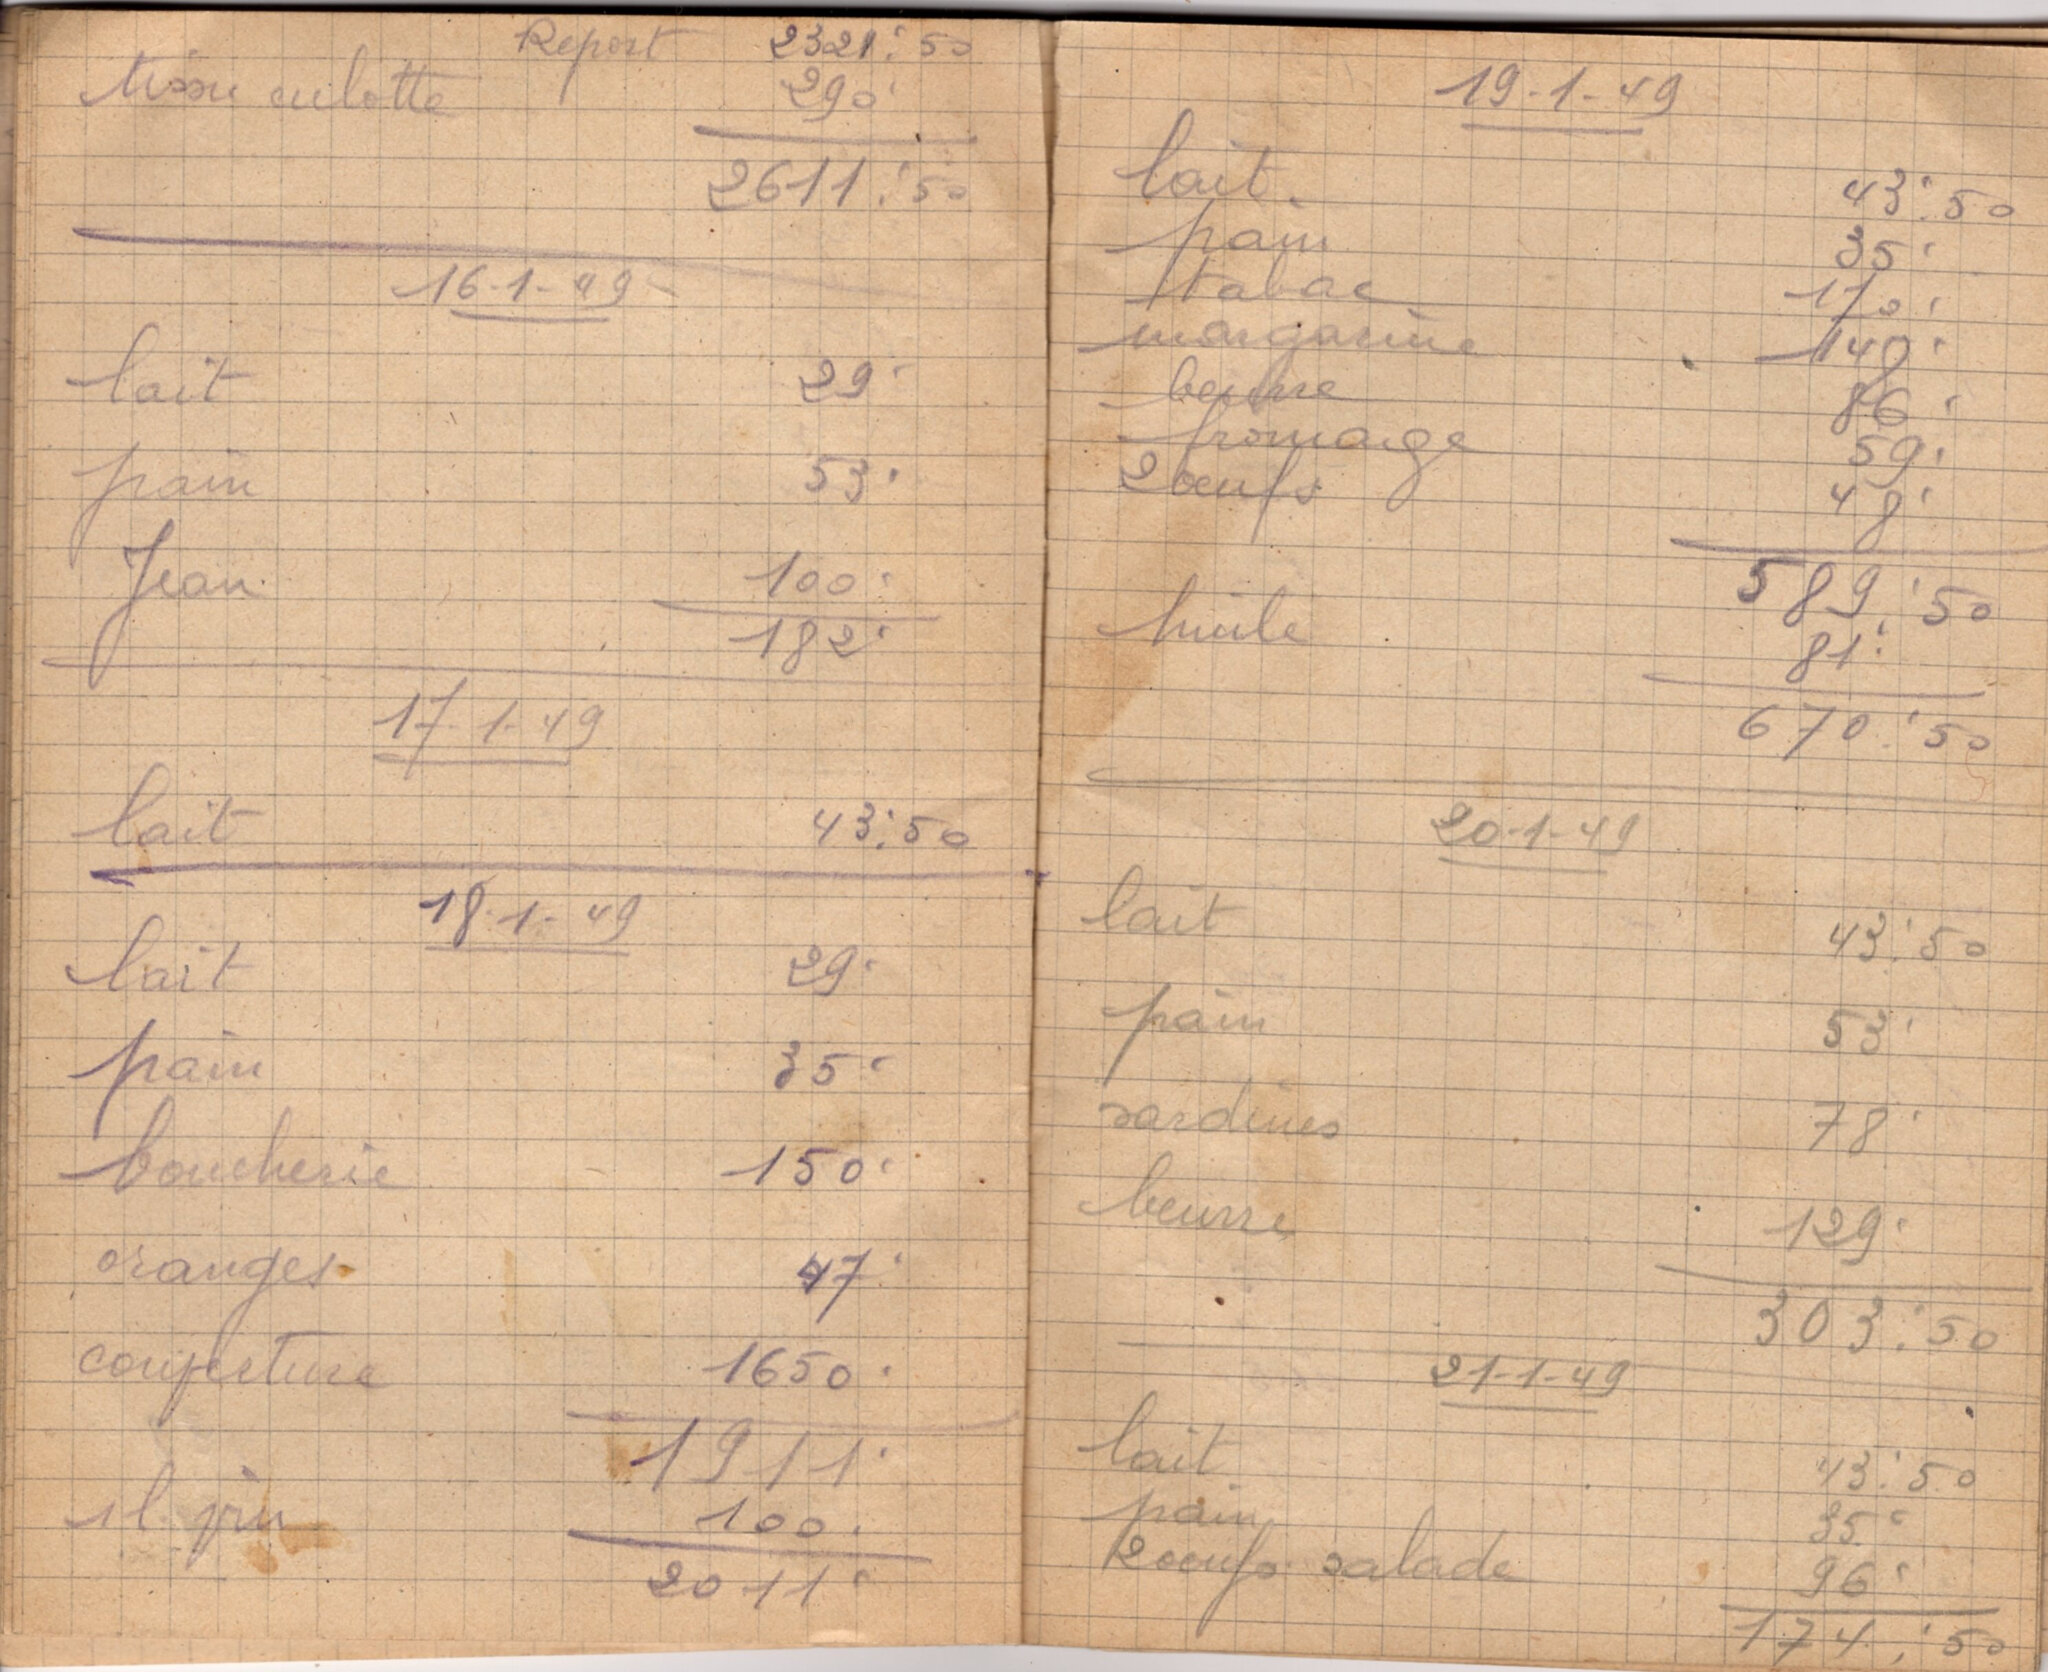 Report 2321:50
tissu culotte 290:
2611:50
16-1-49
lait 29:
pain 53:
Jean 100:
182:
17-1-49
lait 43:50
18-1-49
lait 29:
pain 35:
boucherie 150:
oranges 47:
couverture 1650:
1911:
1 l. vin 100:
2011:
19-1-49
lait. 43:50
pain 35:
tabac 170:
margarine 148:
beurre 86:
fromage 59:
2 oeufs 48:
589:50
huile 81:
670:50
20-1-49
lait 43:50
pain 53:
sardines 78:
beurre 129:
303:50
21-1-49
lait 43:50
pain 35:
2 oeufs salade 96:
174:50